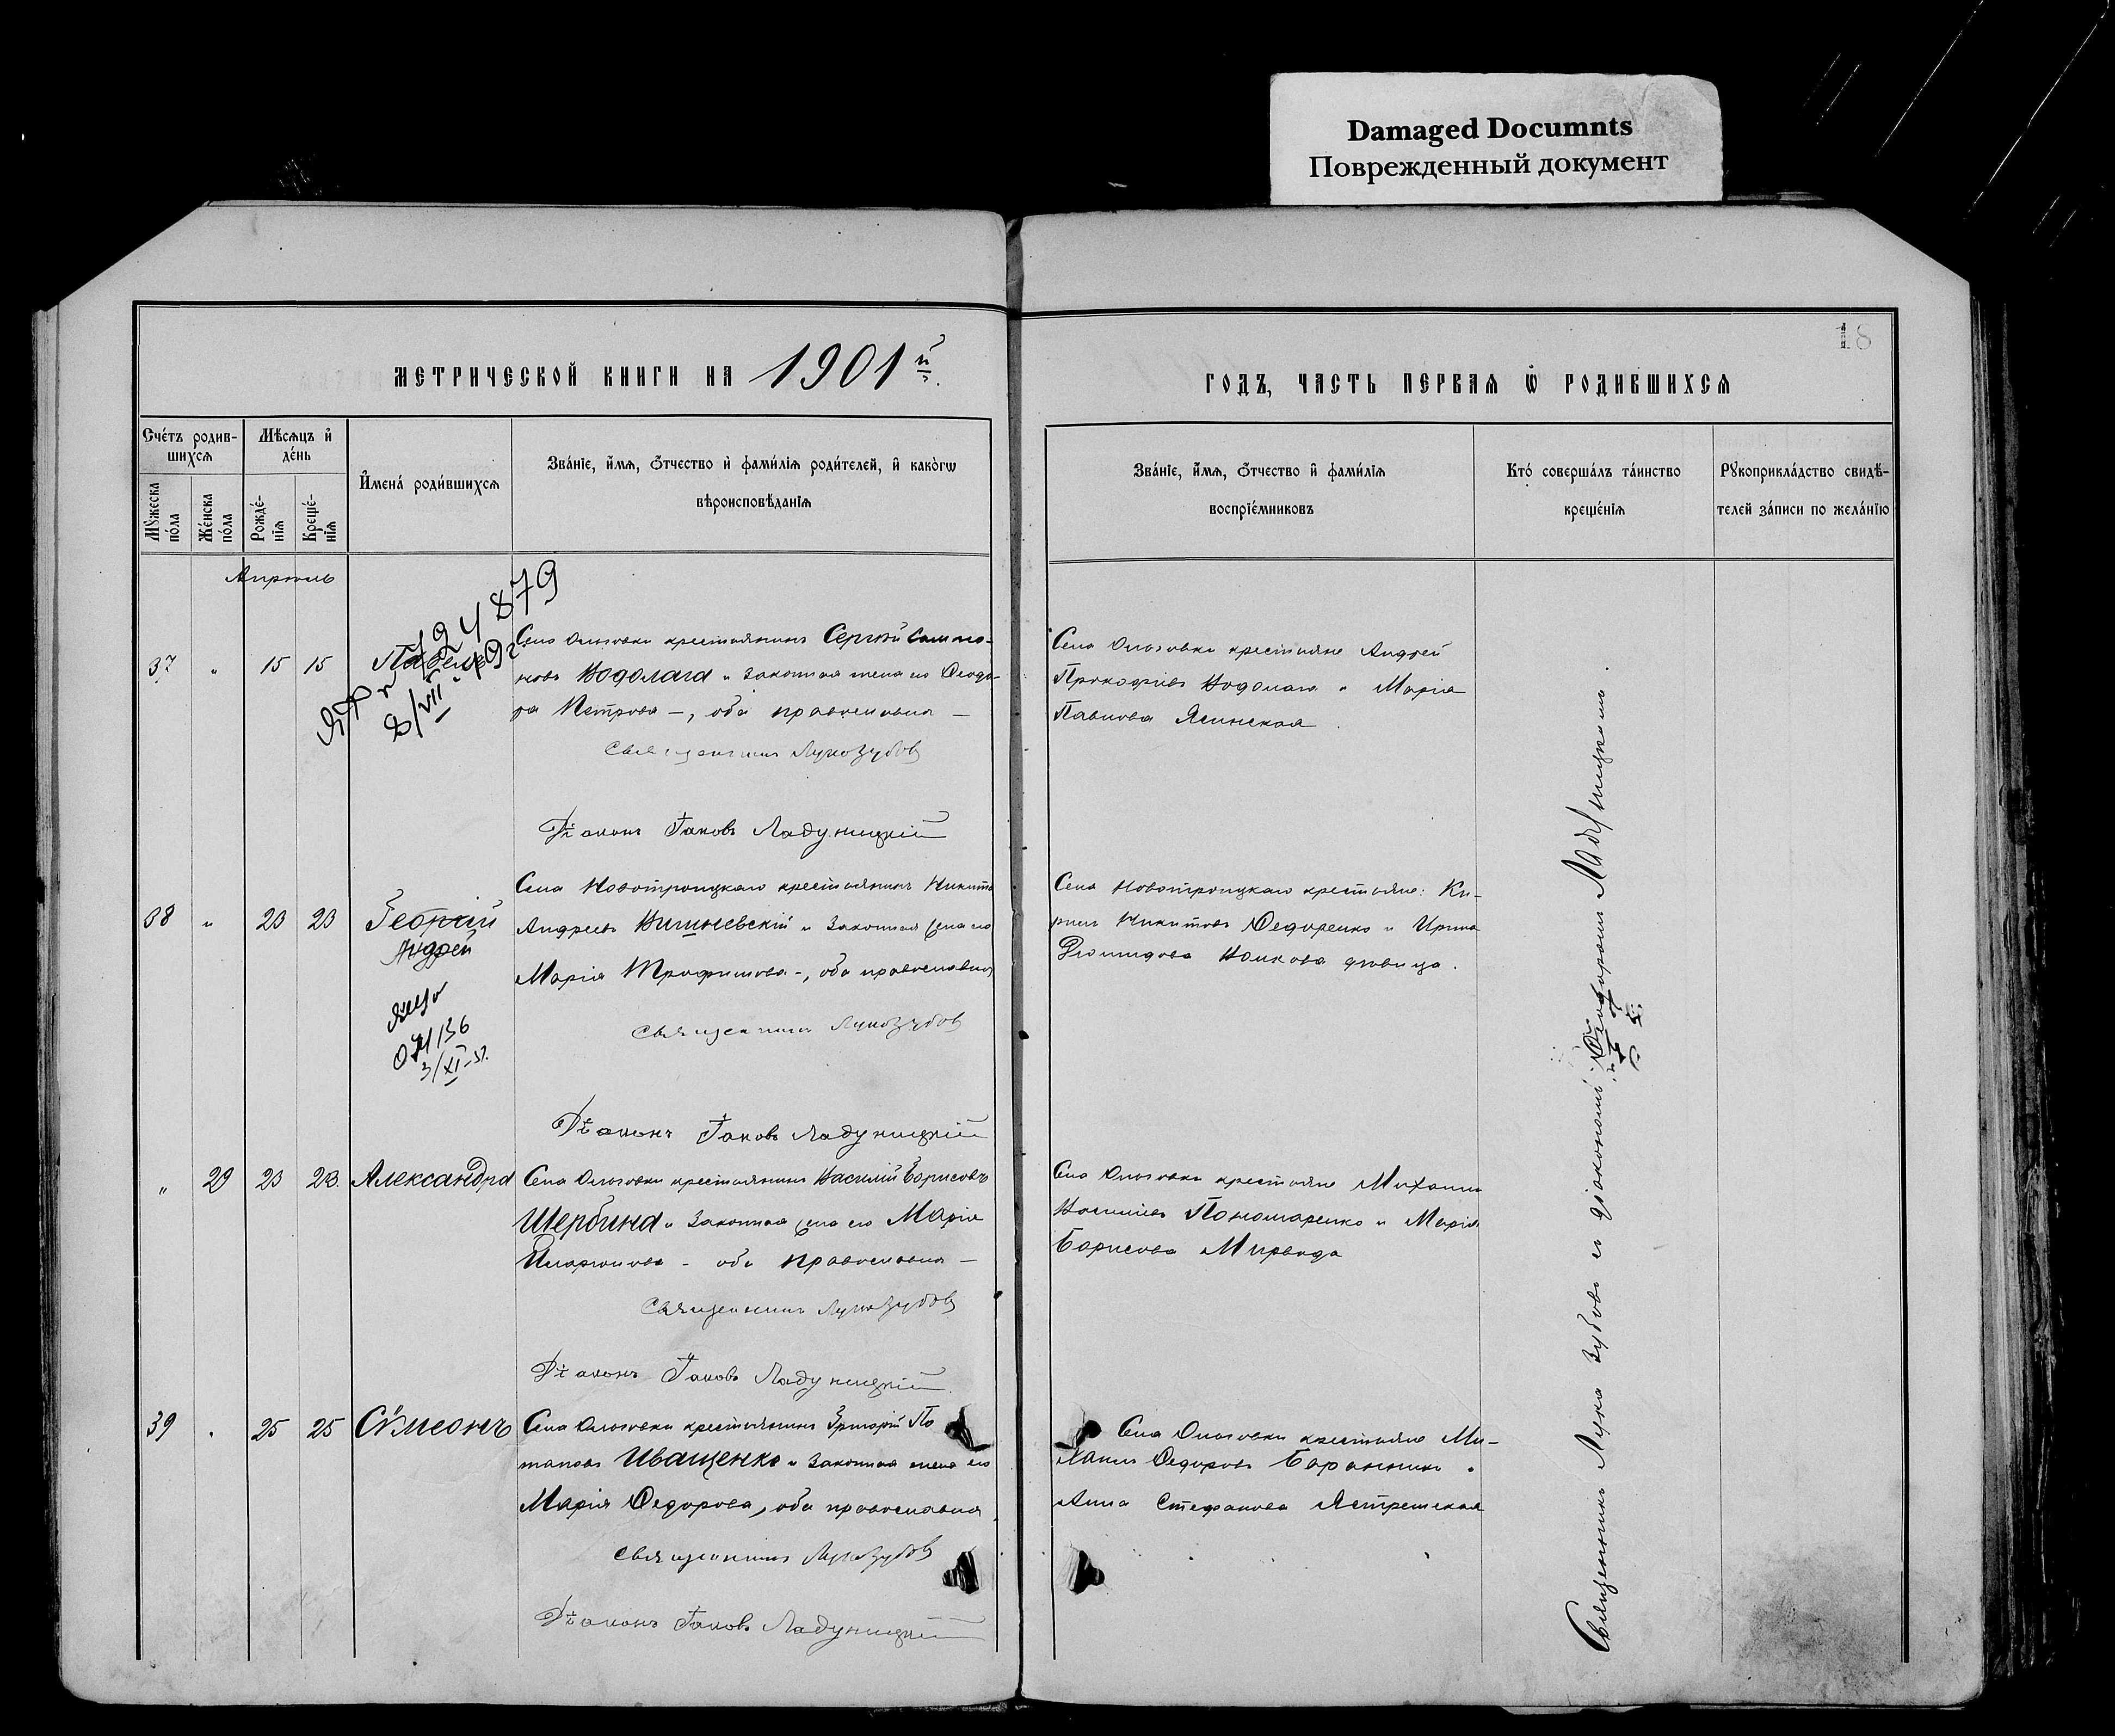 Damaged Documnts
Поврежденный документ
18
МЕТРИЧЕСКОЙ КНИГИ НА 1901й.
ГОДЪ, ЧАСТЬ ПЕРВАЯ Ѡ РОДИВШИХСЯ
Счетъ родив-
шихся
Мѣсяцъ и
день
Имена родившихся
Званіе, имя, отчество и фамилія родителей, и какогѡ
вѣроисповѣданія
Мꙋжеска
пола
Женска
пола
Рожде-
нія
Креще-
нія
Званіе, имя, отчество и фамилія
воспріемниковъ
Кто совершалъ таинство
крещенія
Рꙋкоприкладство свидѣ-
телей записи по желанію
Апрѣль
37 " 15 15 Павелъ
124879
8/VII-49г
Села Ольговки крестьянинъ Сергѣй
Водолага и законная жена его Ѳеодо-
ра Петрова -, оба православна -
Священникъ Лука Зубовъ
Діаконъ Іаковъ Ладушицкій
Села Ольговки крестьяне Андрей
Прокофіевъ Водолага и Марія
Павлова Ясинская
38 " 23 23 Георгій
Андрей
3/XI-51.
Села Новотроицкаго крестьянинъ Никита
Андреевъ Вишневскій и законная жена его
Марія Трофимова -, оба православна
Священникъ Лука Зубовъ
Діаконъ Іаковъ Ладушицкій
Села Новотроицкаго крестьяне: Ки-
рилъ Никитовъ Ѳедоренко и Ирина
Волкова дѣвица.
" 29 23 23. Александра
Села Ольговки крестьянинъ Василій Борисовъ
Щербина и законная жена его Марія
Иларіонова - оба православна -
Священникъ Лука Зубовъ
Діаконъ Іаковъ Ладушицкій
Села Ольговки крестьяне Михаилъ
Васильевъ Пономаренко и Марія
Борисова
39 " 25 25 Сѷмеонъ
Села Ольговки крестьянинъ Григорій По
таповъ Иващенко и законная жена его
Марія Ѳедорова, оба православна
Священникъ Лука Зубовъ
Діаконъ Іаковъ Ладушицкій
Села Ольговки крестьяне Ми-
хаилъ Ѳедоровъ Баранникъ и
Анна Стефанова
Священникъ Лука Зубовъ съ діакономъ Ладушицкимъ.